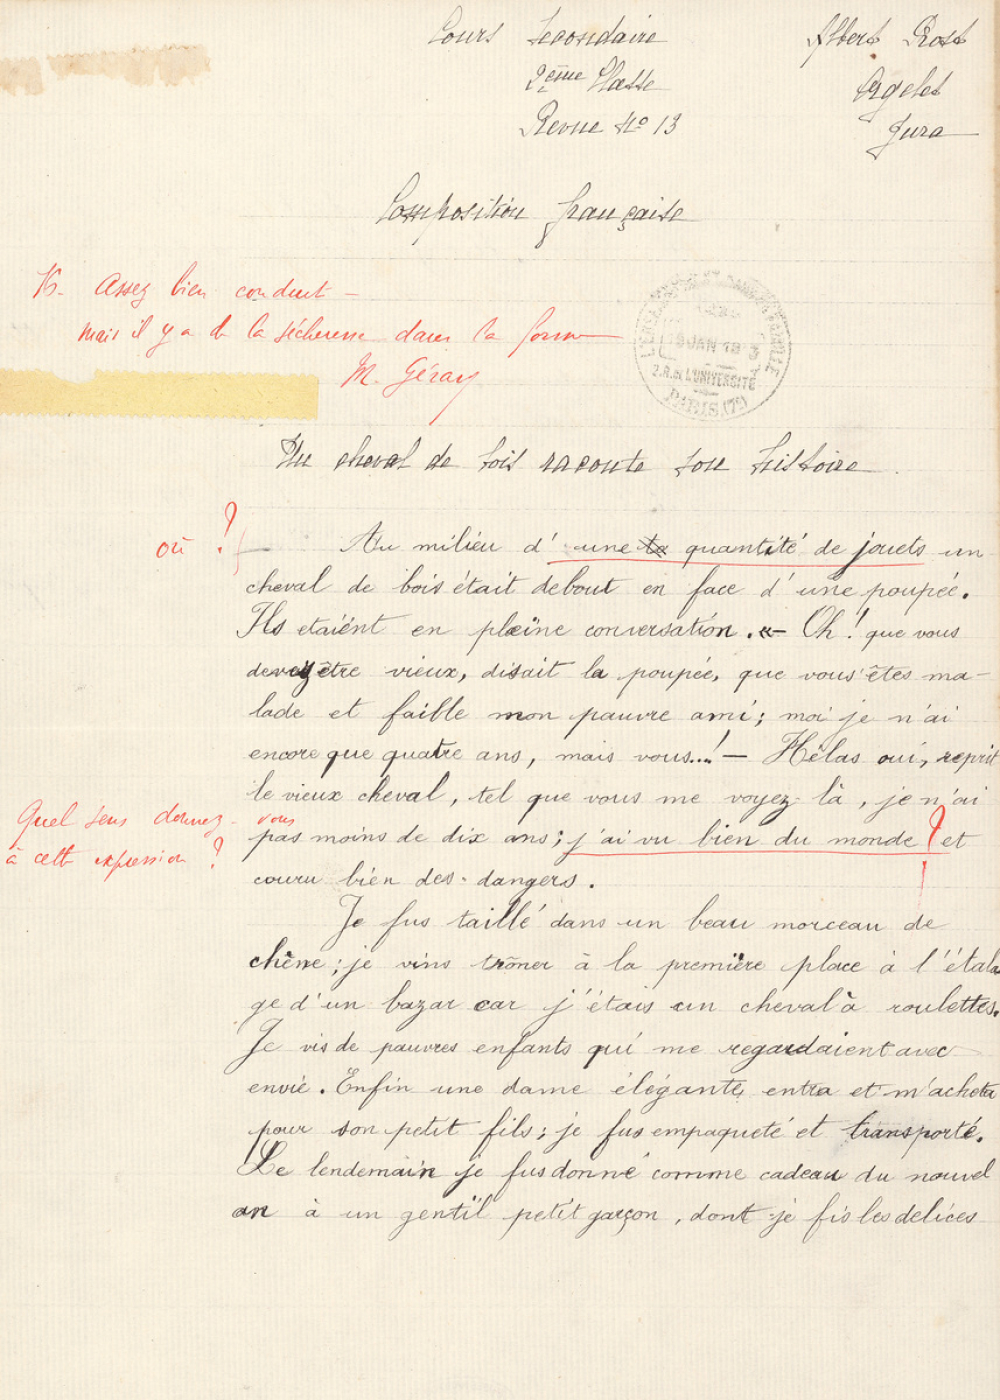 Cours Secondaire
2ème Classe
Revue No 13
Albert Prost
Orgelet
Jura
Composition française
Assez bien conduit -
mais il y a de la sécheresse dans la forme
M. Géray
L'ÉCOLE
JAN
2.R. de L'UNIVERSITÉ
PARIS (7e)
Un cheval de bois raconte son histoire.
où ?
Au milieu d'une quantité de jouets un
cheval de bois était debout en face d'une poupée.
Ils etaiént en pleine conversation. «- Oh! que vous
devez être vieux, disait la poupée, que vous êtes ma-
lade et faible mon pauvre ami; moi je n'ai
encore que quatre ans, mais vous...! - Hélas oui, reprit
le vieux cheval, tel que vous me voyez là, je n'ai
Quel sens donnez-vous
à cette expression ?
pas moins de dix ans; j'ai vu bien du monde ? et
couru bien des dangers.
Je fus taillé dans un beau morceau de
chêne; je vins trôner à la première place à l'étala
ge d'un bazar car j'étais un cheval à roulettes.
Je vis de pauvres enfants qui me regardaient avec
envie. Enfin une dame élégante entra et m'acheta
pour son petit fils; je fus empaqueté et transporté.
Le lendemain je fus donné comme cadeau du nouvel
an à un gentil petit garçon, dont je fis les delices